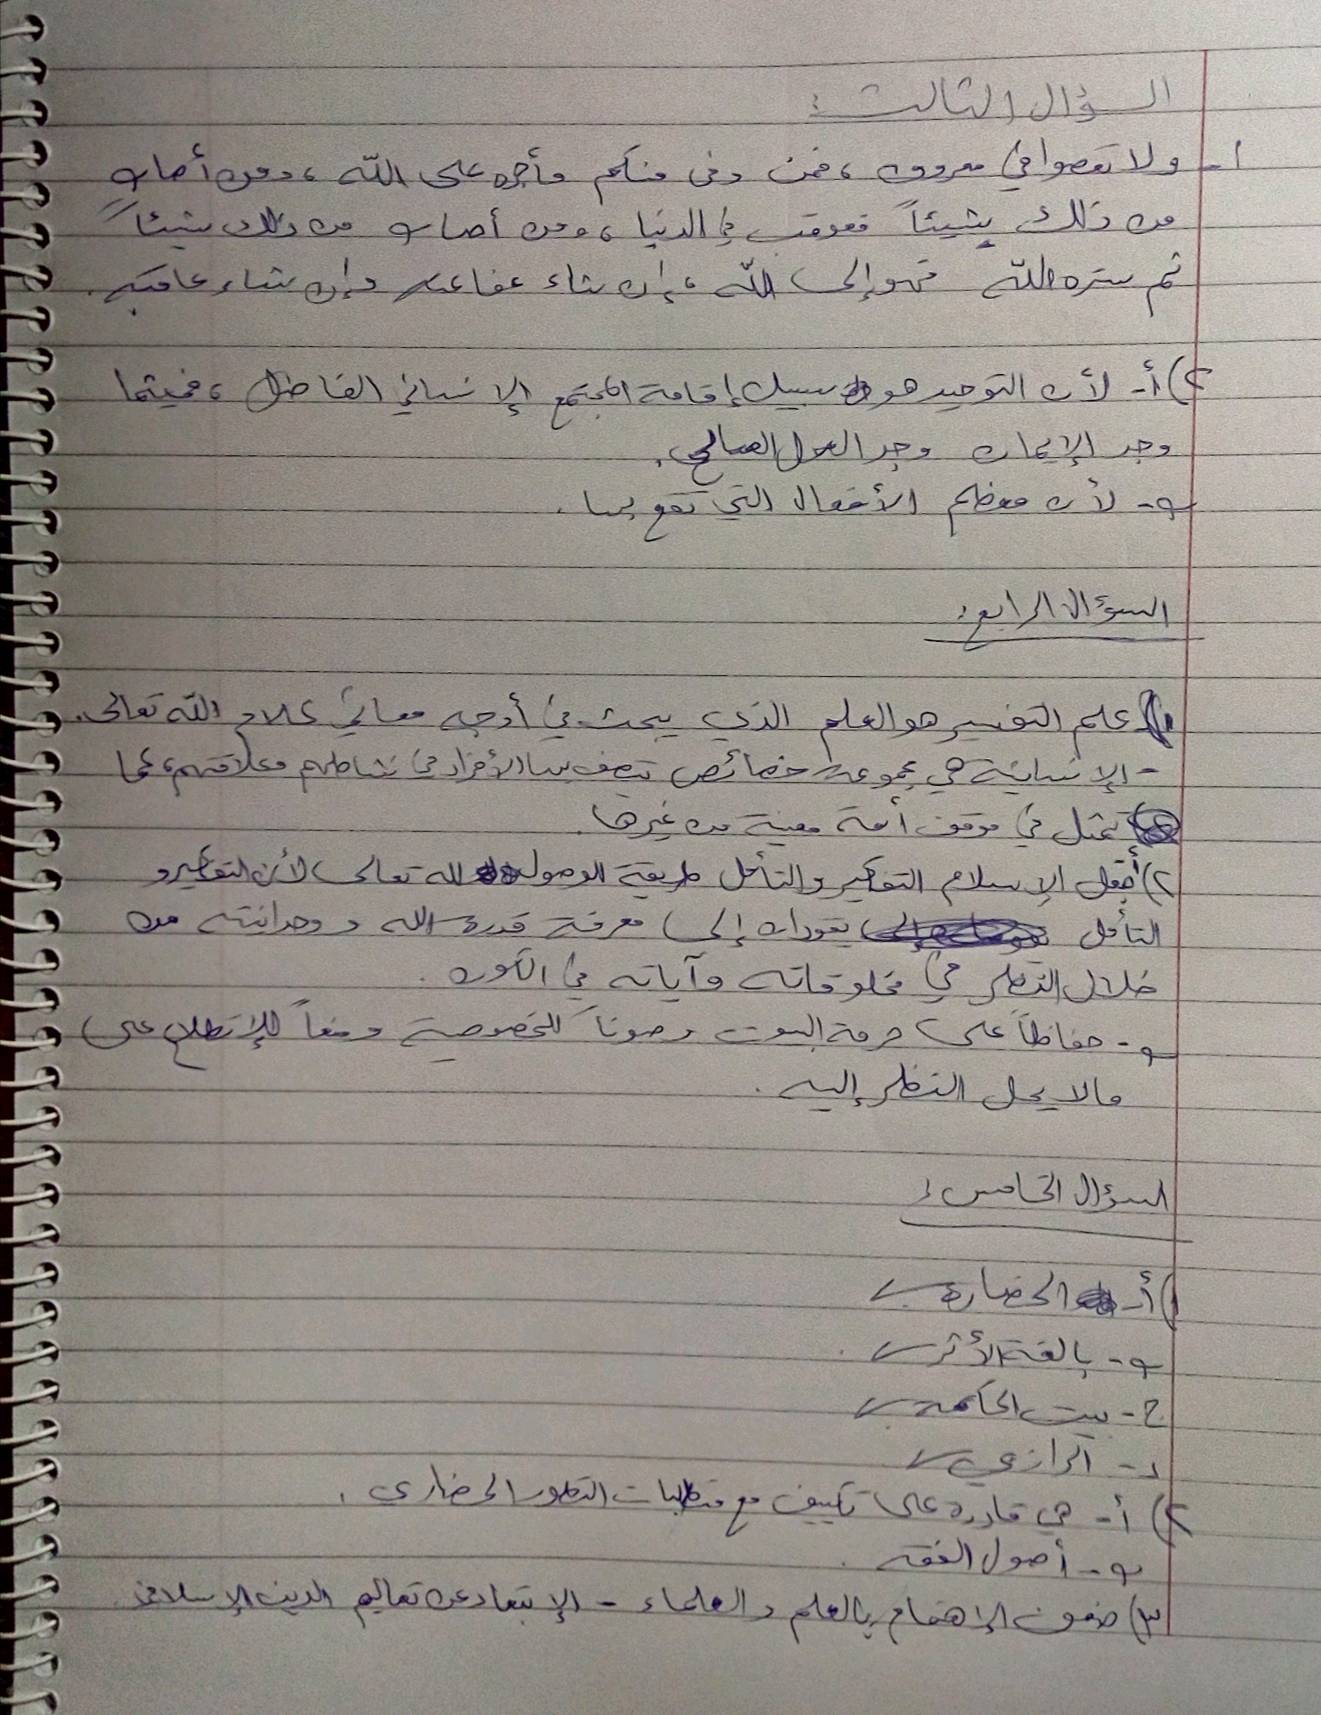 السؤال الثالث :
١- ولا تعصوا في معروف ، فمن وفى منكم فأجره على الله ، ومن أصاب
من ذلك شيئاً فعوقب في الدنيا ، ومن أصاب من ذلك شيئاً
ثم ستره الله فهو إلى الله ، إن شاء عفا عنه وإن شاء عاقبه .
٢) أ- لأن التوحيد هو سبيل إقامة المجتمع الإنساني الفاضل ، فحيثما
وجد الإيمان وجد العمل الصالح .
ب- لأن معظم الأفعال التي تقع بها .
السؤال الرابع :
١) علم التفسير هو العلم الذي يبحث في أوجه معاني كلام الله تعالى .
- الإنسانية هي مجموعة خصائص تتصف بها الأفراد في نشاطهم وعلاقتهم ، كما
تمثل في موقف أمة معينة من غيرها .
٢) أ- جعل الإسلام التفكير والتأمل طريقة الوصول لله تعالى لأن التفكير و
التأمل يقودان إلى معرفة قدرة الله و وحدانيته من
خلال النظر في مخلوقاته وآياته في الكون .
ب- حفاظاً على حرمة البيوت وصوناً للخصوصية ومنعاً للإطلاع على
مالا يحل النظر إليه .
السؤال الخامس :
١) أ- الحضارة
ب- بالغة الأثر
ج- بيت الحكمة
د- الرازي
٢) أ- هي قادرة على تكييف مع متطلبات التطور الحضاري .
ب- أصول الفقه .
٣) ضعف الإهتمام بالعلم والعلماء - الإبتعاد عن تعاليم الدين الإسلامي .